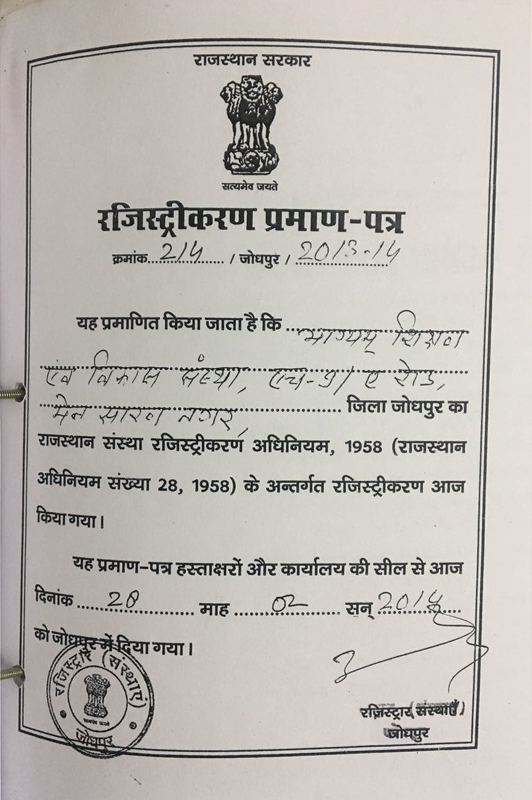 राजस्थान सरकार
सत्यमेव जयते
रजिस्ट्रीकरण प्रमाण-पत्र
क्रमांक 214 / जोधपुर / 2013-14
यह प्रमाणित किया जाता है कि भाग्यम् शिक्षण
एंव विकास संस्था, एच-9/ ए रोड,
मेन सारण नगर, जिला जोधपुर का
राजस्थान संस्था रजिस्ट्रीकरण अधिनियम, 1958 (राजस्थान
अधिनियम संख्या 28, 1958) के अन्तर्गत रजिस्ट्रीकरण आज
किया गया।
यह प्रमाण-पत्र हस्ताक्षरों और कार्यालय की सील से आज
दिनांक 28 माह 02 सन् 2014
को जोधपुर में दिया गया।
रजिस्ट्रार (संस्थाएं)
जोधपुर
रजिस्ट्रार (संस्थाएँ)
जोधपुर